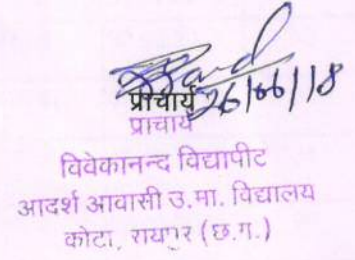 26/06/18
प्राचार्य
प्राचार्य
विवेकानन्द विद्यापीट
आदर्श आवासी उ.मा. विद्यालय
कोटा, रायपुर (छ.ग.)